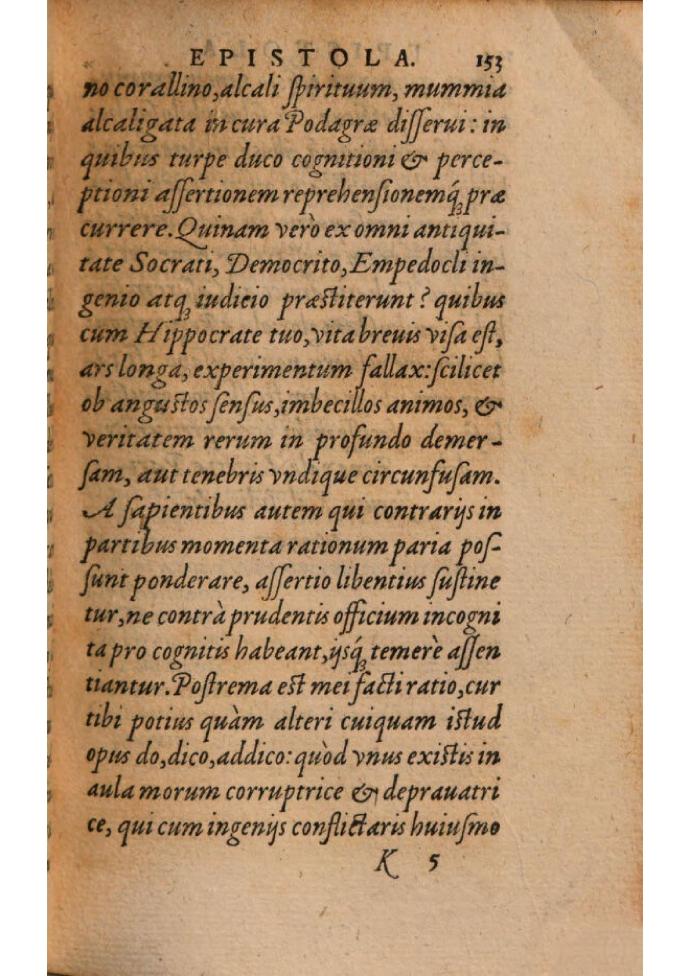 EPISTOLA. 153
no corallino, alcali ſpirituum, mummia
alcaligata in cura Podagræ diſſerui: in
quibus turpe duco cognitioni & perce-
ptioni aſſertionem reprehenſionemq́ꝫ præ
currere. Quinam verò ex omni antiqui-
tate Socrati, Democrito, Empedocli in-
genio atqꝫ iudicio præſtiterunt? quibus
cum Hippocrate tuo, vita breuis viſa eſt,
ars longa, experimentum fallax: ſcilicet
ob anguſtos ſenſus, imbecillos animos, &
veritatem rerum in profundo demer-
ſam, aut tenebris vndique circunfuſam.
A ſapientibus autem qui contrarijs in
partibus momenta rationum paria poſ-
ſunt ponderare, aſſertio libentius ſuſtine
tur, ne contrà prudentis officium incogni
ta pro cognitis habeant, ijsq́ꝫ temerè aſſen
tiantur. Poſtrema eſt mei facti ratio, cur
tibi potius quàm alteri cuiquam iſtud
opus do, dico, addico: quòd vnus exiſtis in
aula morum corruptrice & deprauatri
ce, qui cum ingenijs conflictaris huiuſmo
K 5